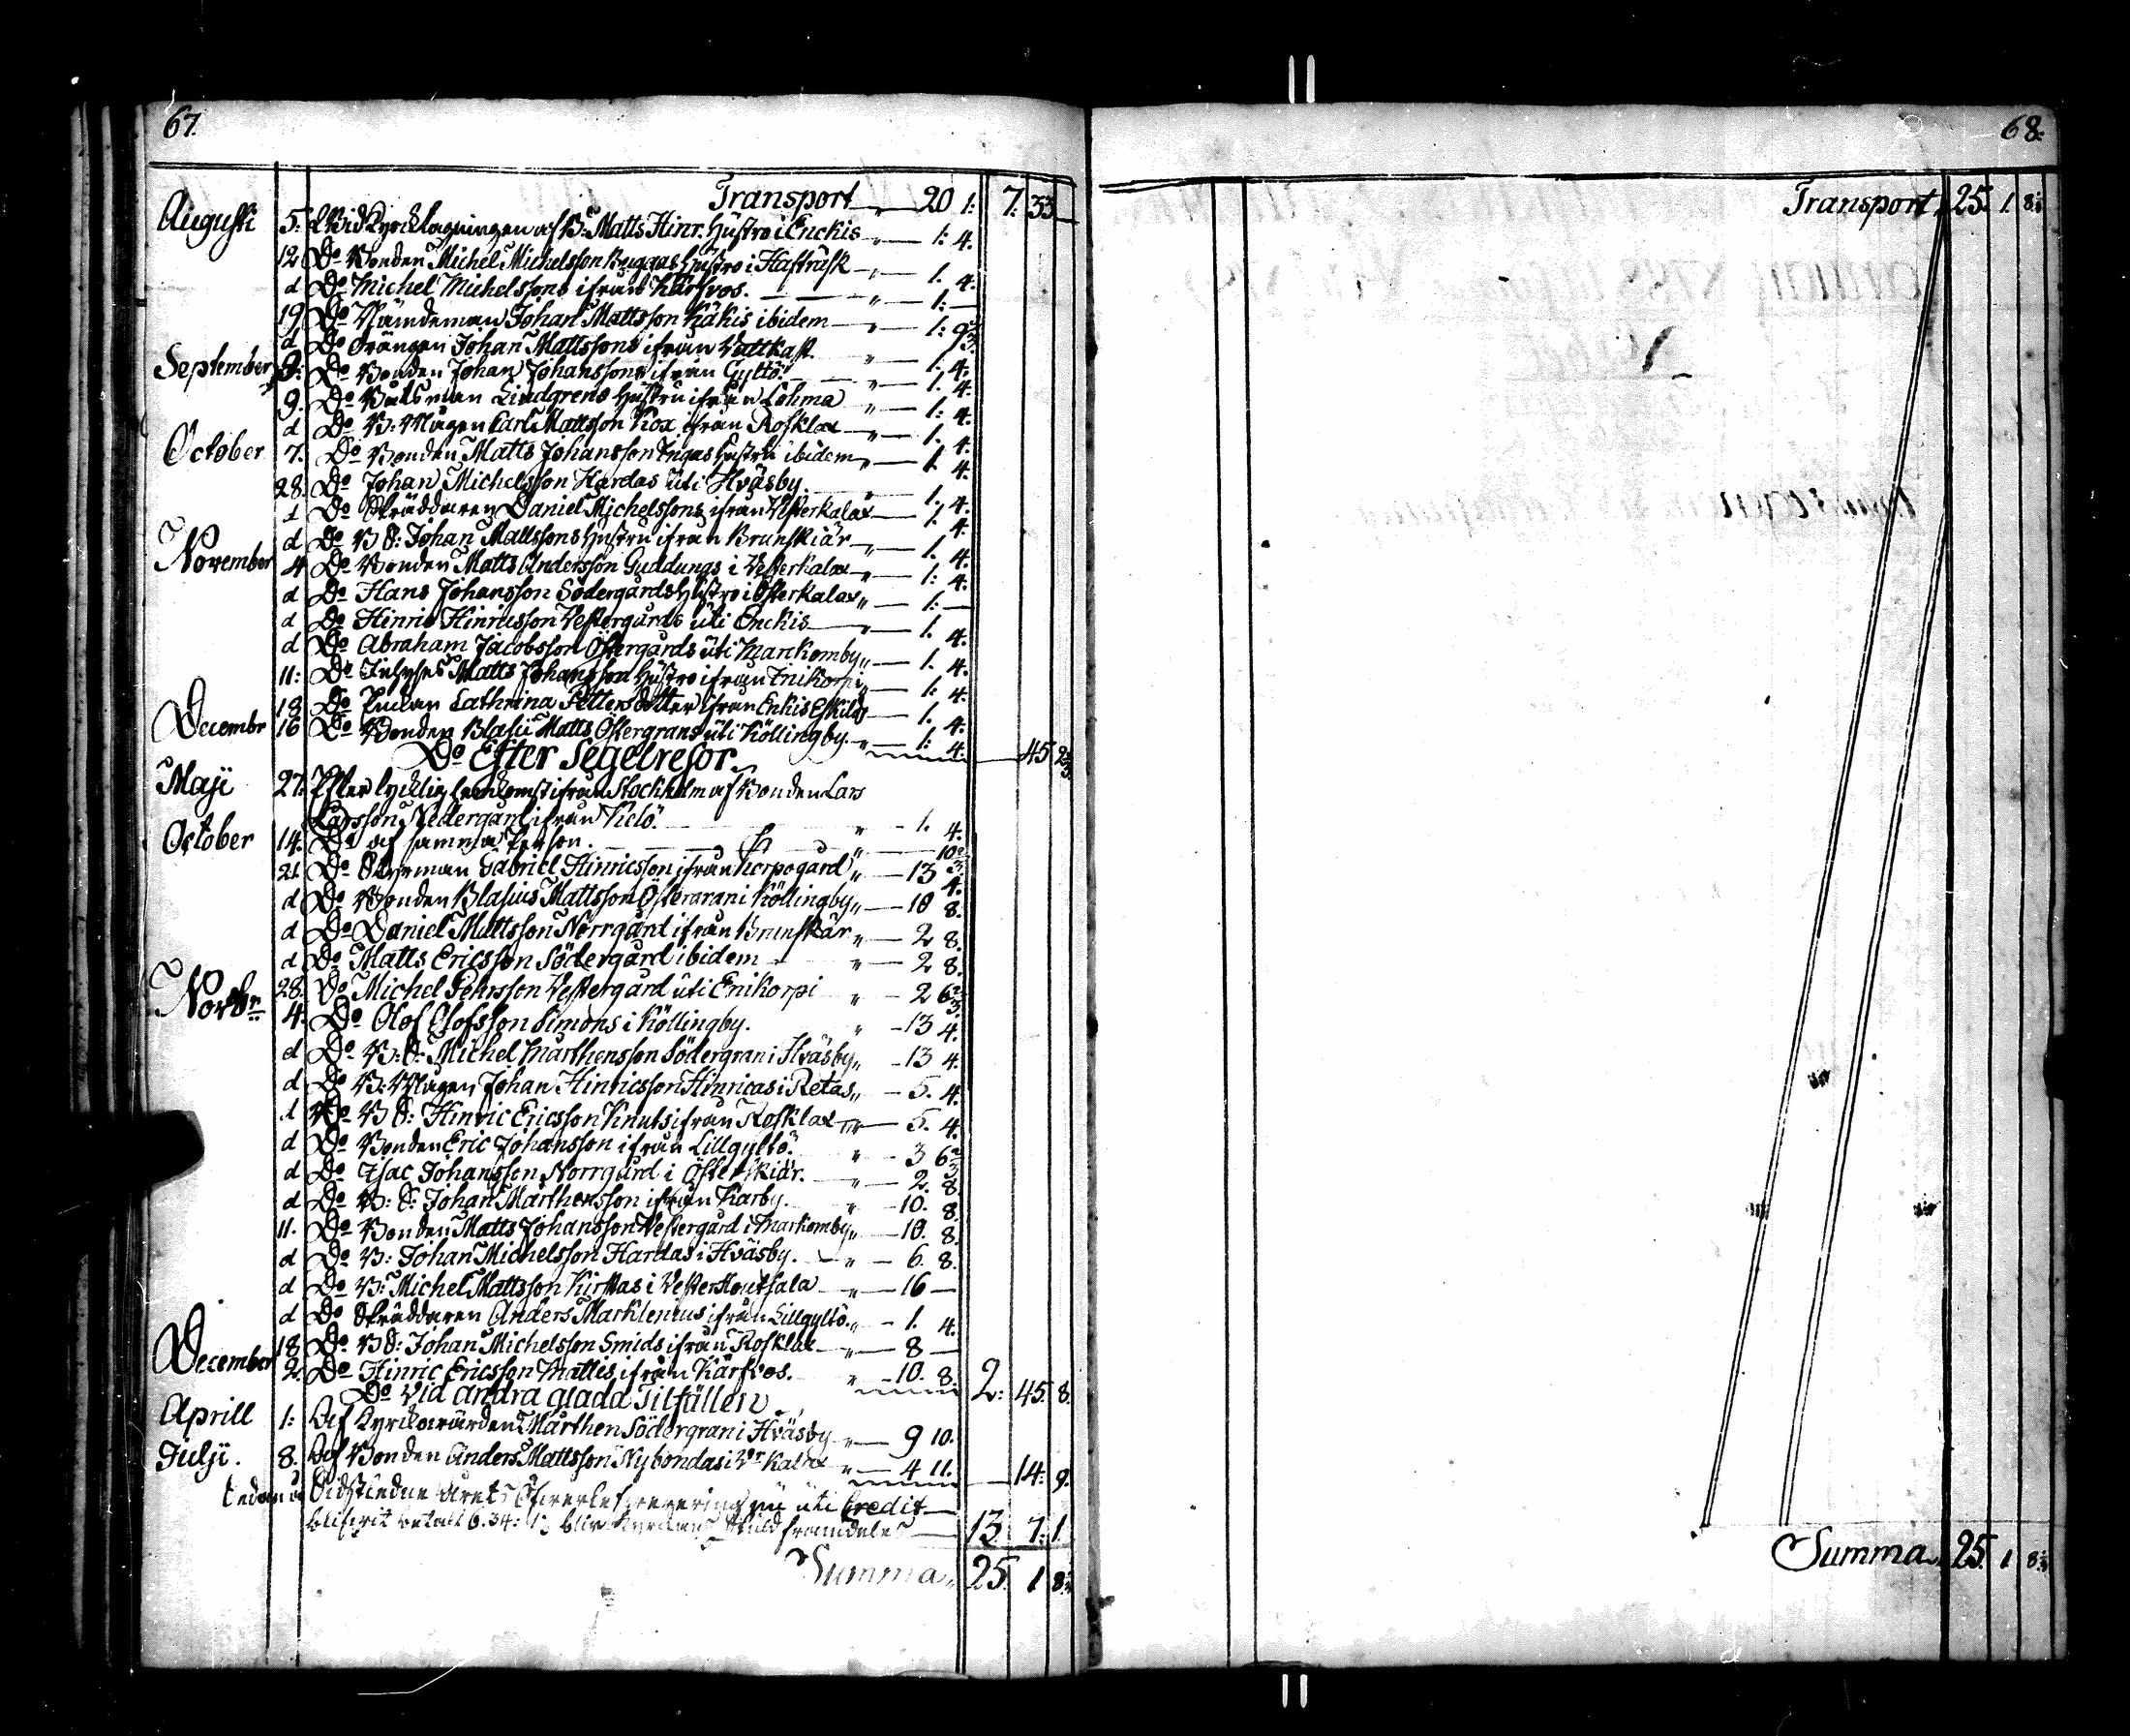 67.
Transport — 20 1: 7: 33
Augusti 5: Vid Kyrcktagningen af B: Matts Hinr. Hustro i Enckis „ — 1: 4.
12 Do Bonden Michel Michelsson Buggas Hustro i Hafträsk „ — 1. 4.
d Do Michel Michelssons ifrån Kärfvos. „ — 1: —
19 Do Nämdeman Johan Mattsson Käkis ibidem — „ — 1: 9 2/3
d Do Drängen Johan Mattssons ifrån Wattkast. „ — 1. 4.
September 9: Do Bonden Johan Johanssons ifrån Gyltö. „ — 1. 4.
9. Do Båtsman Lindgrens Hustru ifrån Lohma „ — 1: 4.
d Do B: Mågen Carl Mattsson Kox ifrån Rosklax „ — 1. 4.
October 7. Do Bonden Matts Johansson Ingas Hustru ibidem „ — 1. 4.
28. Do Johan Michelsson Hardas uti Hväsby. — 1. 4.
d Do Skräddaren Daniel Michelssons ifrån Vesterkalax — 1. 4.
d Do B S: Johan Mattssons Hustru ifrån Brunskiär — „ — 1. 4.
November 4 Do Bonden Matts Andersson Guddungs i Vesterkalax „ — 1: 4.
d Do Hans Johansson Södergårds Hustro i Österkalax „ — 1: —
d Do Hinric Hinricsson Vestergårds uti Enckis — „ — 1. 4.
d Do Abraham Jacobsson Östergårds uti Marckomby „ — 1. 4.
11: Do Matts Johansson Hustro ifrån Enikorpi „ — 1: 4.
18 Do Pigan Cathrina Pettersdotter ifrån Enkis Eskils — 1. 4.
Decembr 16 Do Bonden Blasii Matts Östergrans uti Köllingby. „ — 1: 4. — 45 2 2/3
Do Efter Segelresor.
Maji 27: Efter lycklig hemkomst ifrån Stockholm af Bonden Lars
Larsson Nedergård ifrån Kelö. „ — 1. 4.
October 14. Do af samma Person. „ — 10 2/3
21. Do Styrman Gabriel Hinricsson ifrån Korpogård „ — 13 4.
d Do Bonden Blasius Mattsson Östergran i Köllingby „ — 10 8.
d Do Daniel Mattsson Norrgård ifrån Brunskär „ — 2 8.
d Do Matts Ericsson Södergård ibidem — „ — 2 8.
28. Do Michel Pehrsson Vestergård uti Enikorpi „ — 2 6 2/3
Novbr 4. Do Olof Olofsson Simons i Köllingby. „ — 13 4.
d Do B: S: Michel Mårthensson Södergran i Hväsby „ — 13 4.
d Do B: Mågen Johan Hinricsson Hinricas i Retas „ — 5. 4.
d Do B S: Hinric Ericsson Knuts ifrån Rosklax „ — 5. 4.
d Do Bonden Eric Johansson ifrån Lillgyltö. „ — 3 6 2/3
d Do Isac Johansson Norrgård i Österskiär. „ — 2. 8
d Do B: S: Johan Mårthensson ifrån Karby. „ — 10. 8.
11. Do Bonden Matts Johansson Vestergård i Markomby „ — 10. 8.
d Do B: Johan Michelsson Hardas i Hväsby. — „ — 6. 8.
d Do B: Michel Mattsson Kirstas i Vesterhoutsala „ — 16 —
d Do Skräddaren Anders Marklenius ifrån Lillgyltö. „ — 1. 4.
18. Do B S: Johan Michelsson Smids ifrån Rosklax „ — 8 —
December 2. Do Hinric Ericsson Mattis ifrån Kärfvos. „ — 10. 8. 2: 45. 8.
Do Vid andra glada Tilfällen.
Aprill 1: Af Kyrckovärden Mårthen Södergran i Hväsby „ — 9 10.
Julji. 8. Af Bonden Anders Mattsson Nybondas i Vr Kalax „ — 4 11. — 14: 9.
Sidstledne Årets uti Credit —
blifvit betalt 6.34: Kyrckans Skuld framdeles — 13 7: 1.
Summa „ 25. 1 8 1/3
68:
Transport „ 25. 1. 8 1/3
Summa „ 25. 1 8 1/3